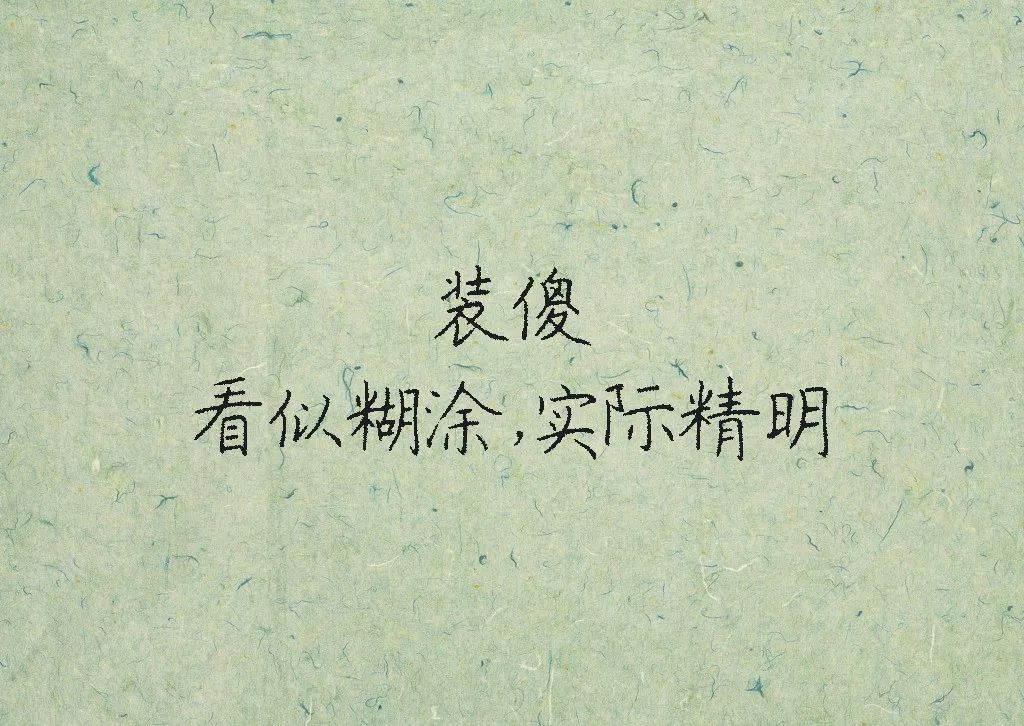 装傻
看似糊涂,实际精明